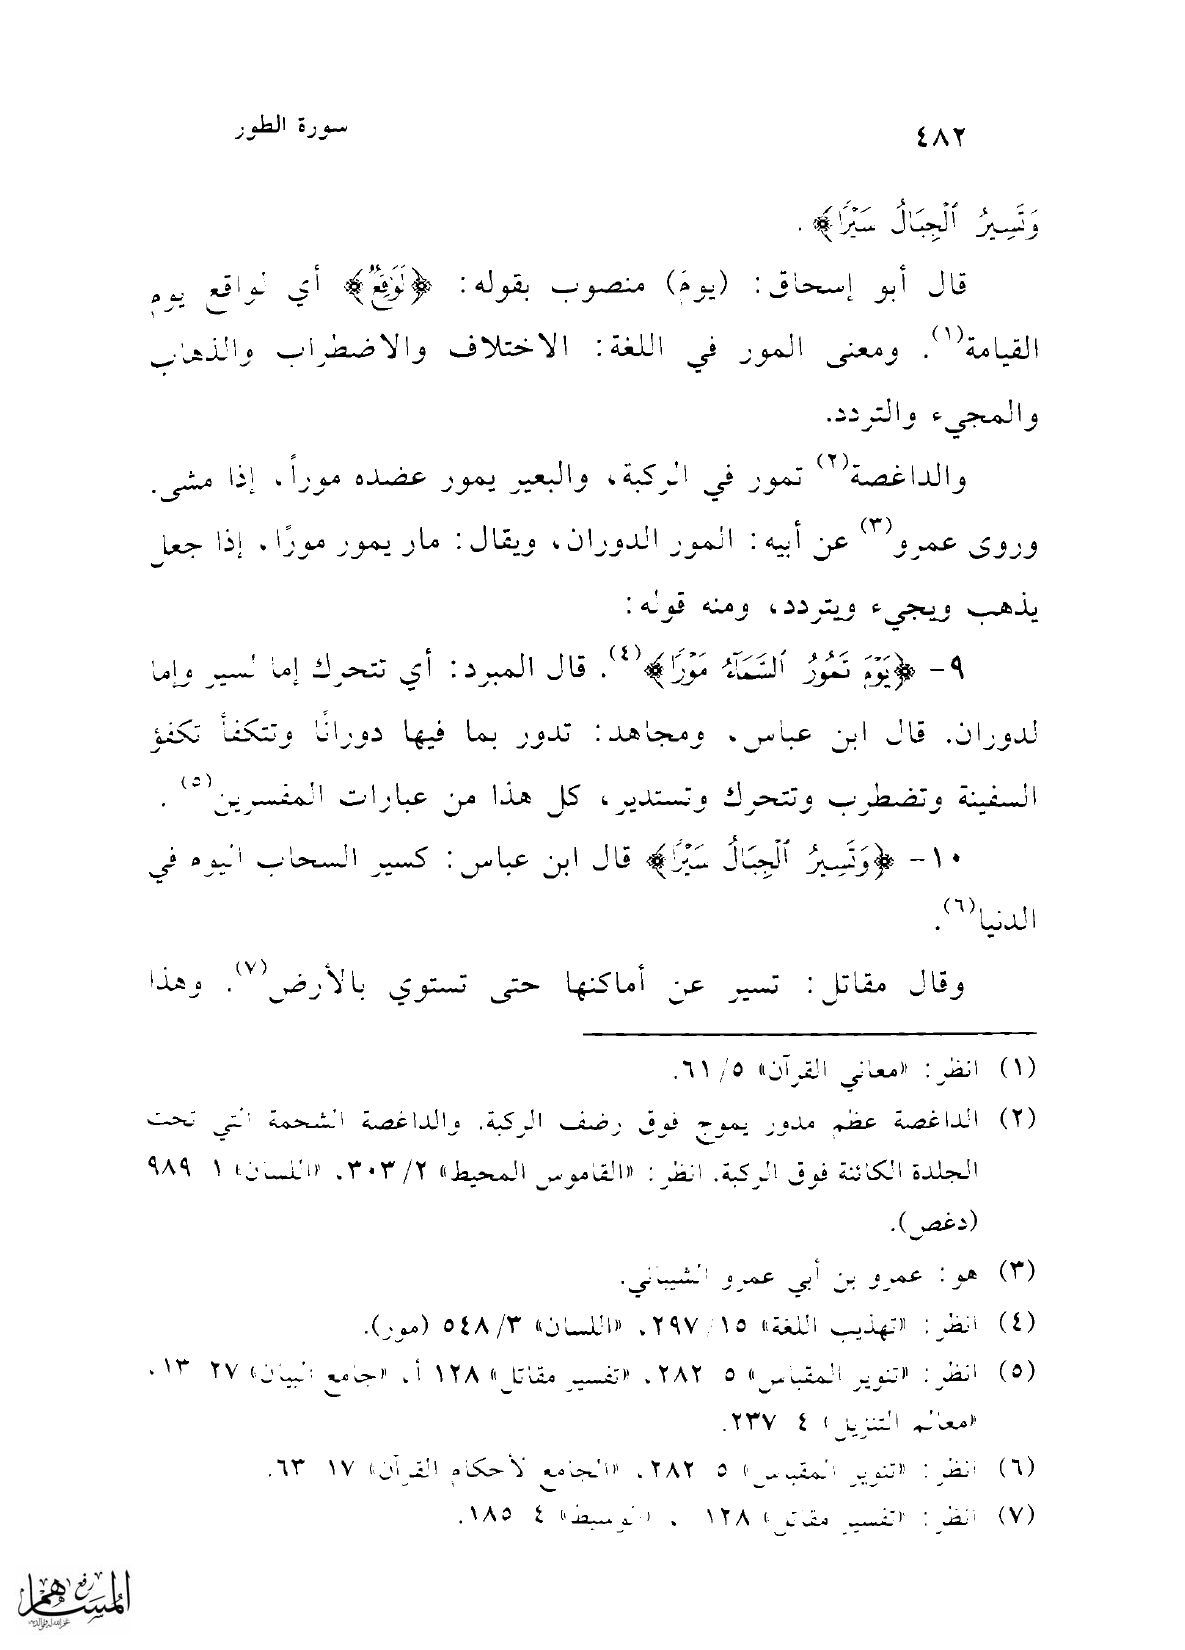 ٤٨٢ سورة الطور
وَتَسِيرُ ٱلْجِبَالُ سَيْرًا﴾.
قال أبو إسحاق: (يومَ) منصوب بقوله: ﴿لَوَٰقِعٌ﴾ أي لواقع يوم
القيامة(١). ومعنى المور في اللغة: الاختلاف والاضطراب والذهاب
والمجيء والتردد.
والداغصة(٢) تمور في الركبة، والبعير يمور عضده موراً، إذا مشى.
وروى عمرو(٣) عن أبيه: المور الدوران، ويقال: مار يمور مورًا، إذا جعل
يذهب ويجيء ويتردد، ومنه قوله:
٩- ﴿يَوْمَ تَمُورُ ٱلسَّمَآءُ مَوْرًا﴾(٤). قال المبرد: أي تتحرك إما لسير وإما
لدوران. قال ابن عباس، ومجاهد: تدور بما فيها دورانًا وتتكفأ تكفؤ
السفينة وتضطرب وتتحرك وتستدير، كل هذا من عبارات المفسرين(٥).
١٠- ﴿وَتَسِيرُ ٱلْجِبَالُ سَيْرًا﴾ قال ابن عباس: كسير السحاب اليوم في
الدنيا(٦).
وقال مقاتل: تسير عن أماكنها حتى تستوي بالأرض(٧). وهذا
(١) انظر: «معاني القرآن» ٥/ ٦١.
(٢) الداغصة عظم مدور يموج فوق رضف الركبة. والداغصة الشحمة التي تحت
الجلدة الكائنة فوق الركبة. انظر: «القاموس المحيط» ٢/ ٣٠٣، «اللسان» ١ ٩٨٩
(دغص).
(٣) هو: عمرو بن أبي عمرو الشيباني.
(٤) انظر: «تهذيب اللغة» ١٥/ ٢٩٧، «اللسان» ٣/ ٥٤٨ (مور).
(٥) انظر: «تنوير المقباس» ٥ ٢٨٢، «تفسير مقاتل» ١٢٨ أ، «جامع البيان» ٢٧ ١٣،
«معالم التنزيل» ٤ ٢٣٧.
(٦) انظر: «تنوير المقباس» ٥ ٢٨٢، «الجامع لأحكام القرآن» ١٧ ٦٣.
(٧) انظر: «تفسير مقاتل» ١٢٨ ، «الوسيط» ٤ ١٨٥.